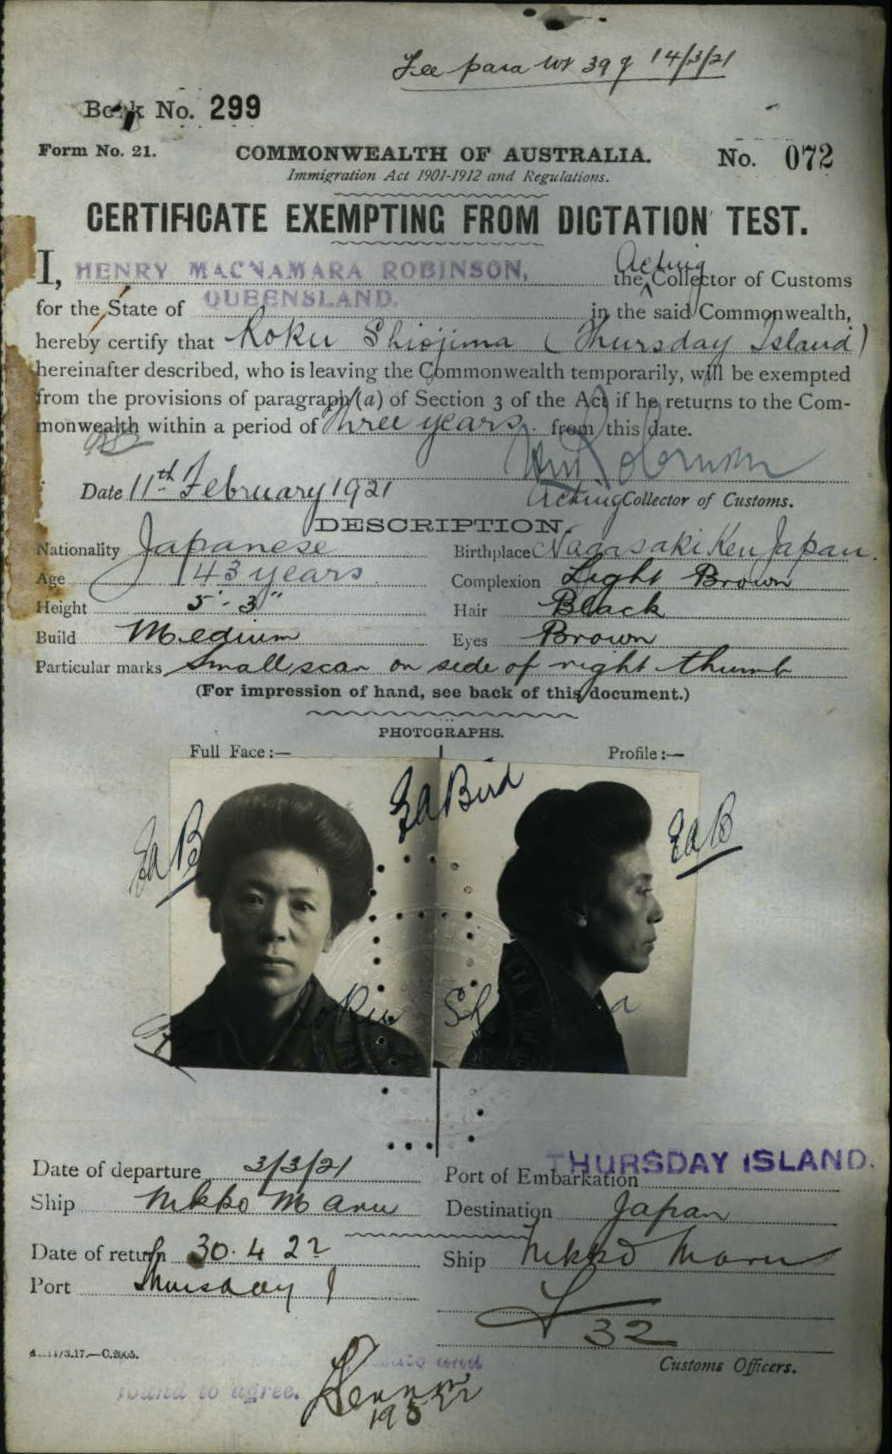 14/3/21
Book No. 299
Form No. 21.
COMMONWEALTH OF AUSTRALIA.
No. 072
Immigration Act 1901-1912 and Regulations.
CERTIFICATE EXEMPTING FROM DICTATION TEST.
I, HENRY MACNAMARA ROBINSON, the Acting Collector of Customs
for the State of QUEENSLAND. in the said Commonwealth,
hereby certify that Koku Shiojima (Thursday Island)
hereinafter described, who is leaving the Commonwealth temporarily, will be exempted
from the provisions of paragraph (a) of Section 3 of the Act if he returns to the Com-
monwealth within a period of Three years. from this date.
HM Robinson
Date 11th February 1921
Acting Collector of Customs.
DESCRIPTION.
Nationality Japanese
Birthplace Nagasaki Ken Japan.
Age 43 years
Complexion Light Brown
Height 5'-3"
Hair Black
Build Medium
Eyes Brown
Particular marks Small scar on side of right thumb
(For impression of hand, see back of this document.)
PHOTOGRAPHS.
Full Face:—
Profile:—
Ed Bird
EdB
EdB
Date of departure 3/3/21
Port of Embarkation THURSDAY ISLAND.
Ship Nikko Maru
Destination Japan
Date of return 30.4 22
Ship Nikko Maru
Port Thursday I
32
Customs Officers.
found to agree.